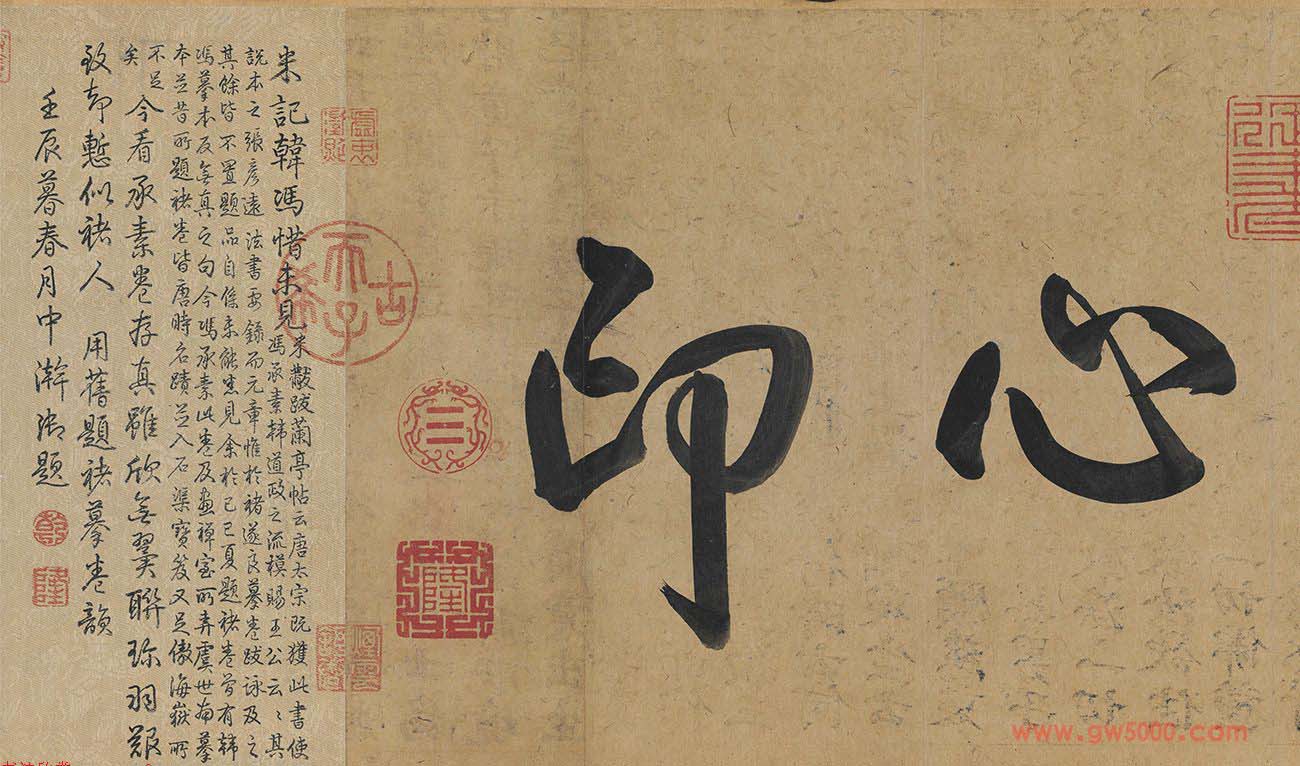 心印
米記韓馮惜未見
米黻跋蘭亭帖云唐太宗既獲此書使
馮承素韓道政之流模賜王公云々其
說本之張彥遠法書要錄而元章惟於褚遂良摹卷跋詠及之
其餘皆不置題品自係未能悉見余於己巳夏題褚卷曾有韓
馮摹本反無真之句今馮承素此卷及畫禪室所弆虞世南摹
本並昔所題褚卷皆唐時名蹟並入石渠寶笈又足傲海嶽所
不足
矣
今看承素卷存真雖欣無翼聯珎羽艱
致却慙似褚人 用舊題褚摹卷韻
壬辰暮春月中澣御題
古希天子
乾
隆
www.gw5000.com